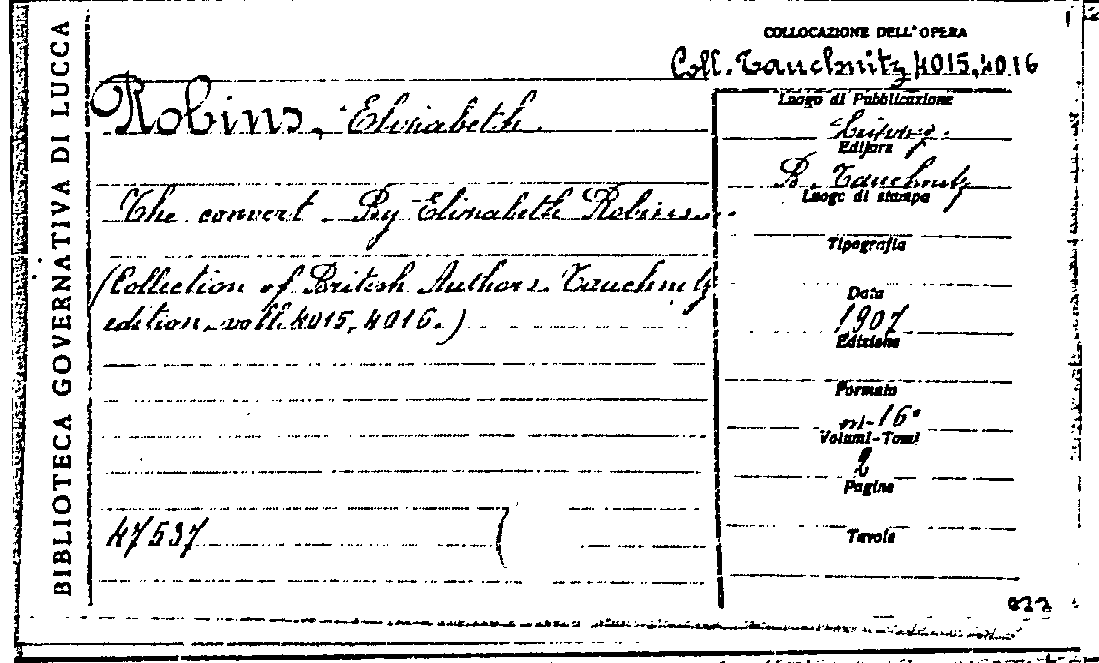 BIBLIOTECA GOVERNATIVA DI LUCCA
COLLOCAZIONE DELL'OPERA
Coll. Tauchnitz 4015, 4016
Robins, Elisabeth
The convert. By Elisabeth Robins.
(Collection of British Authors. Tauchnitz
edition. voll. 4015, 4016.)
47537
Luogo di Pubblicazione
Leipzig.
Editore
B. Tauchnitz
Luogo di stampa
Tipografia
Data
1907
Edizione
Formato
in-16°
Volumi-Tomi
2
Pagine
Tavole